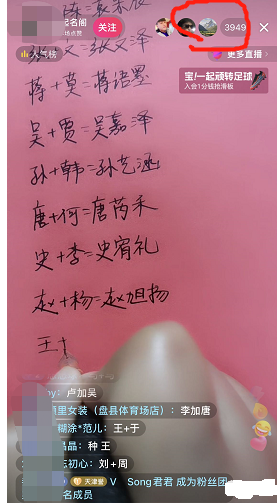 起名阁
关注
3949
人气榜
更多直播
宝/一起顽转足球
入会1分钱抢滑板
蒋+莫=蒋语墨
吴+贾=吴嘉泽
孙+韩=孙艺涵
唐+何=唐芮禾
史+李=史宥礼
赵+杨=赵旭扬
王+
卢加吴
里女装（盘县体育场店）：李加唐
糊涂*范儿：王+于
晶：种 王
忘初心：刘+周
天津爱 V Song君君 成为粉丝团
名成员